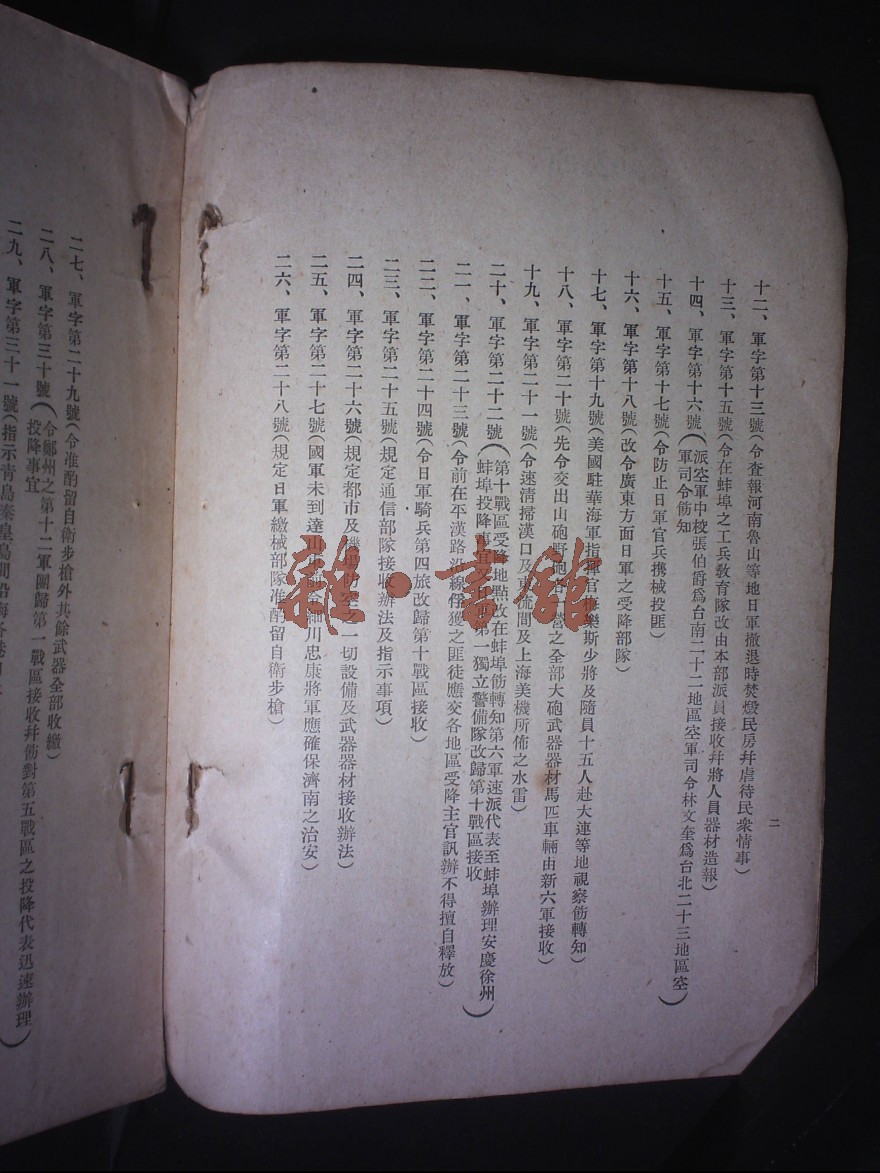 二
十二、軍字第十三號(令查報河南魯山等地日軍撤退時焚燬民房幷虐待民衆情事)
十三、軍字第十五號(令在蚌埠之工兵敎育隊改由本部派員接收幷將人員器材造報)
十四、軍字第十六號(派空軍中校張伯爵爲台南二十二地區空軍司令林文奎爲台北二十三地區空
軍司令飭知)
十五、軍字第十七號(令防止日軍官兵携械投匪)
十六、軍字第十八號(改令廣東方面日軍之受降部隊)
十七、軍字第十九號(美國駐華海軍指揮官 樂斯少將及隨員十五人赴大連等地視察飭轉知)
十八、軍字第二十號(先令交出山砲野砲 營之全部大砲武器器材馬匹車輛由新六軍接收)
十九、軍字第二十一號(令速清掃漢口及東流間及上海美機所佈之水雷)
二十、軍字第二十二號(第十戰區受降地點改在蚌埠飭轉知第六軍速派代表至蚌埠辦理安慶徐州
蚌埠投降事宜 第一獨立警備隊改歸第十戰區接收)
二一、軍字第二十三號(令前在平漢路沿線俘獲之匪徒應交各地區受降主官訊辦不得擅自釋放)
二二、軍字第二十四號(令日軍騎兵第四旅改歸第十戰區接收)
二三、軍字第二十五號(規定通信部隊接收辦法及指示事項)
二四、軍字第二十六號(規定都市及機場 一切設備及武器器材接收辦法)
二五、軍字第二十七號(國軍未到達山東 細川忠康將軍應確保濟南之治安)
二六、軍字第二十八號(規定日軍繳械部隊准酌留自衛步槍)
二七、軍字第二十九號(令准酌留自衛步槍外其餘武器全部收繳)
二八、軍字第三十號(令鄭州之第十二軍團歸第一戰區接收幷飭對第五戰區之投降代表迅速辦理
投降事宜)
二九、軍字第三十一號(指示靑島秦皇島間沿海各港
雜·書館